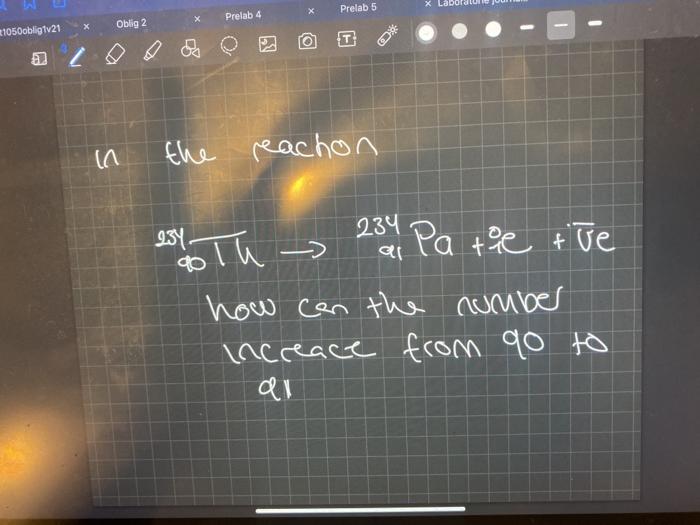 t1050oblig1v21 x Oblig 2 x Prelab 4 x Prelab 5 x
in the reaction
²³⁴₉₀Th → ²³⁴₉₁Pa + ⁰₋₁e + ν̄e
how can the number
increace from 90 to
91